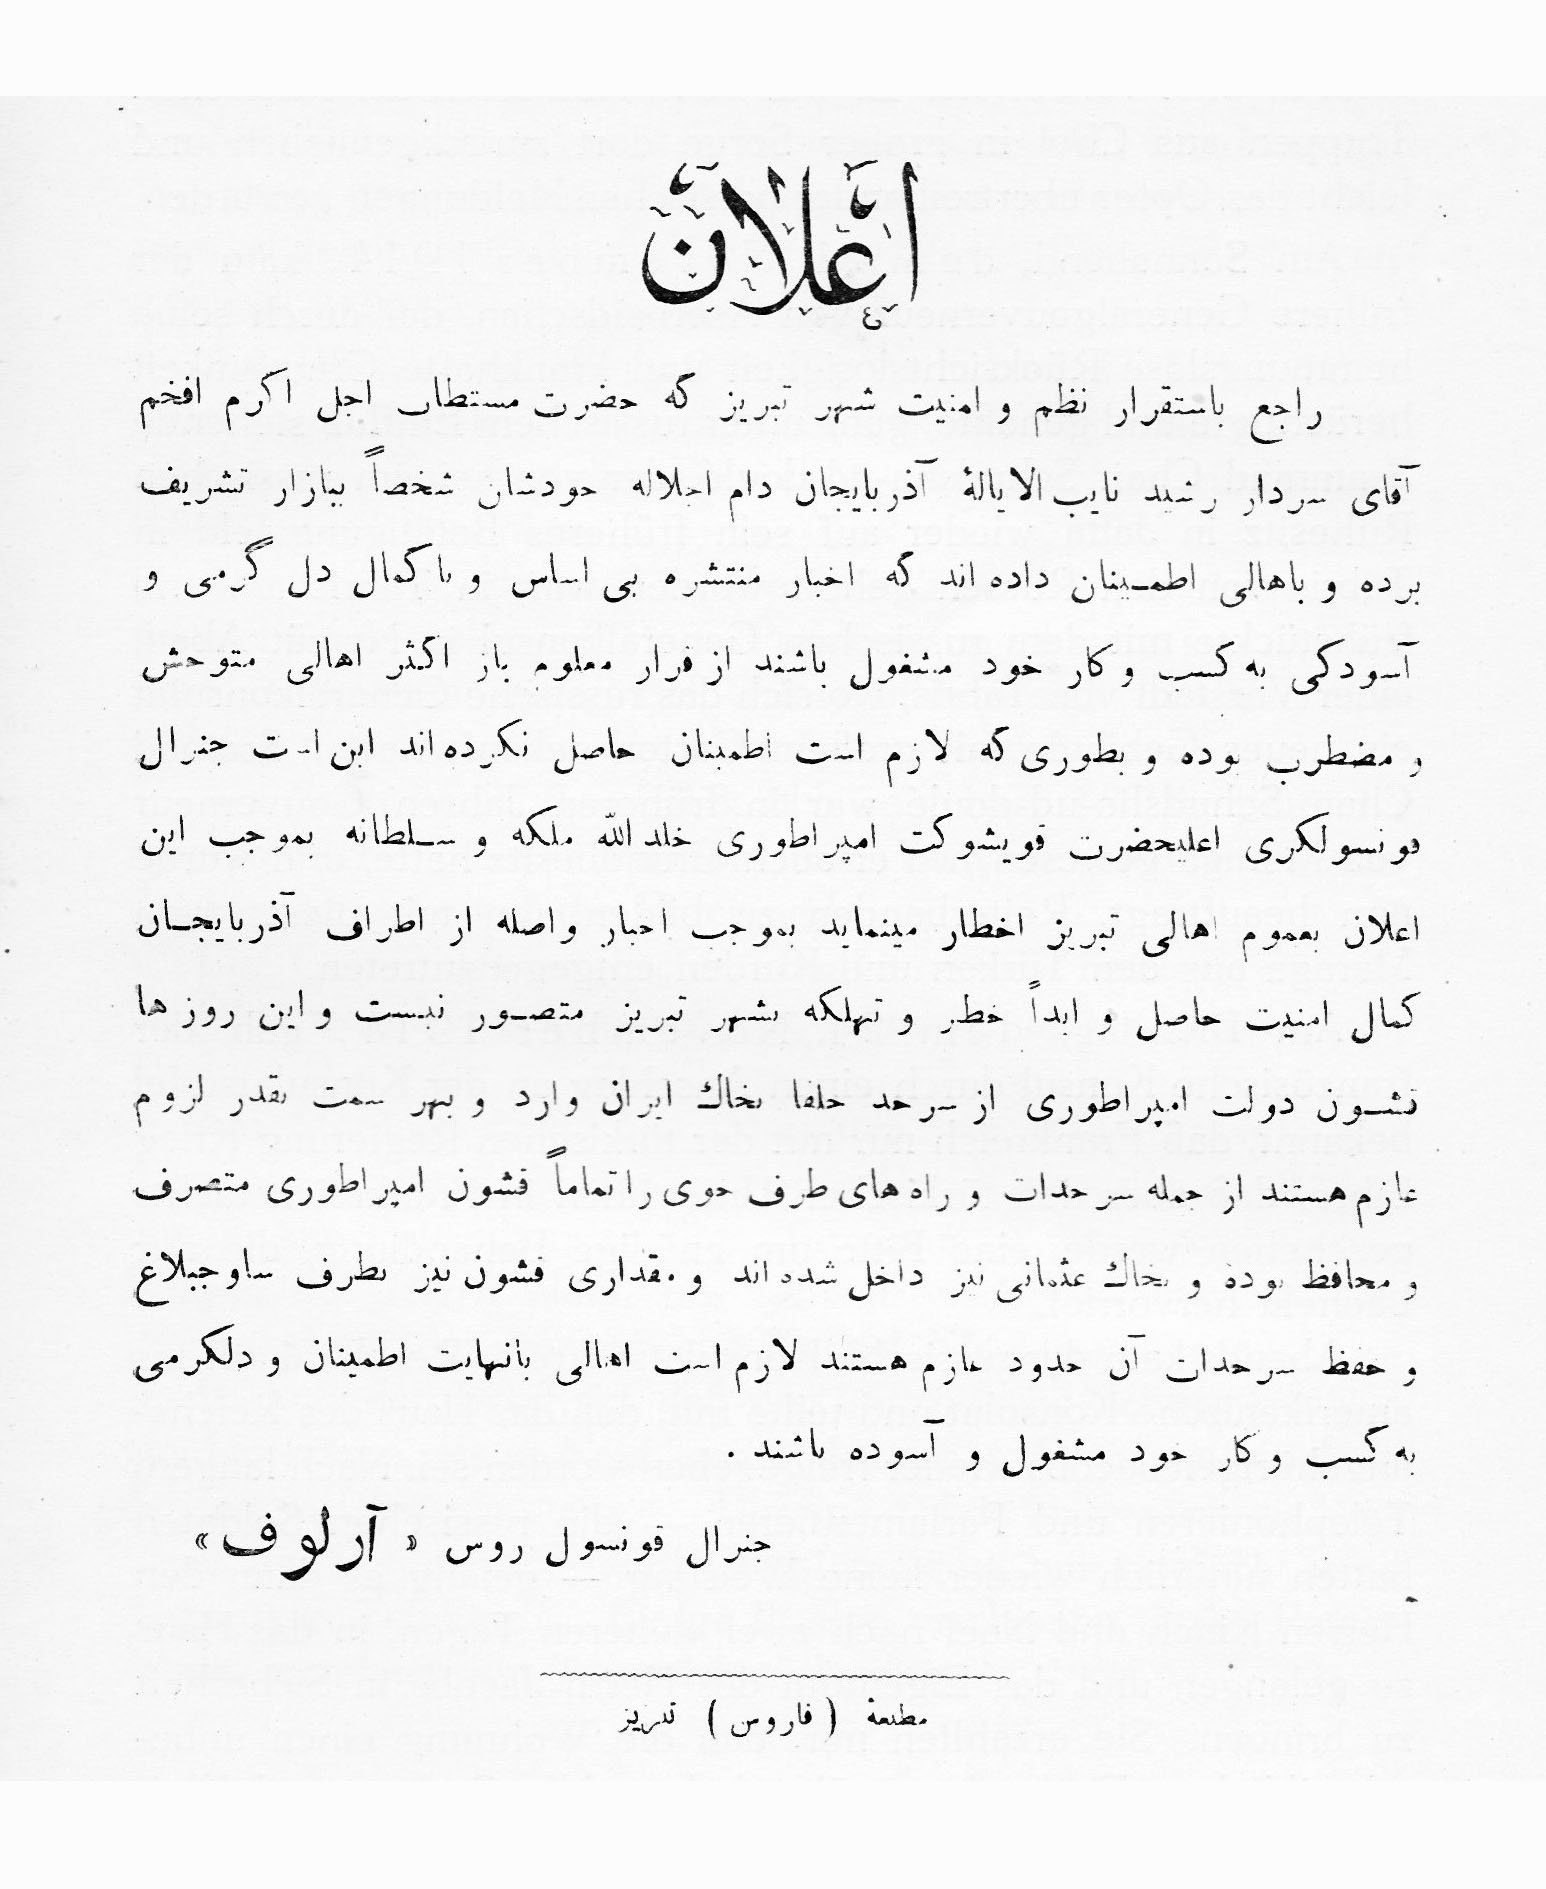 اعلان
راجع باستقرار نظم و امنیت شهر تبریز که حضرت مستطاب اجل اکرم افخم
آقای سردار رشید نایب الایالهٔ آذربایجان دام اجلاله خودشان شخصاً ببازار تشریف
برده و باهالی اطمینان داده اند که اخبار منتشره بی اساس و با کمال دل گرمی و
آسودکی به کسب و کار خود مشغول باشند از قرار معلوم باز اکثر اهالی متوحش
و مضطرب بوده و بطوری که لازم است اطمینان حاصل نکرده اند این است جنرال
قونسولکری اعلیحضرت قویشوکت امپراطوری خلد الله ملکه و سلطانه بموجب این
اعلان بعموم اهالی تبریز اخطار مینماید بموجب اخبار واصله از اطراف آذربایجان
کمال امنیت حاصل و ابداً خطر و تهلکه بشهر تبریز متصور نیست و این روز ها
قشون دولت امپراطوری از سرحد جلفا بخاك ایران وارد و بهر سمت بقدر لزوم
عازم هستند از جمله سرحدات و راه های طرف خوی را تماماً قشون امپراطوری متصرف
و محافظ بوده و بخاك عثمانی نیز داخل شده اند و مقداری قشون نیز بطرف ساوجبلاغ
و حفظ سرحدات آن حدود عازم هستند لازم است اهالی بانهایت اطمینان و دلکرمی
به کسب و کار خود مشغول و آسوده باشند .
جنرال قونسول روس « آرلوف »
مطبعهٔ ( فاروس ) تبریز